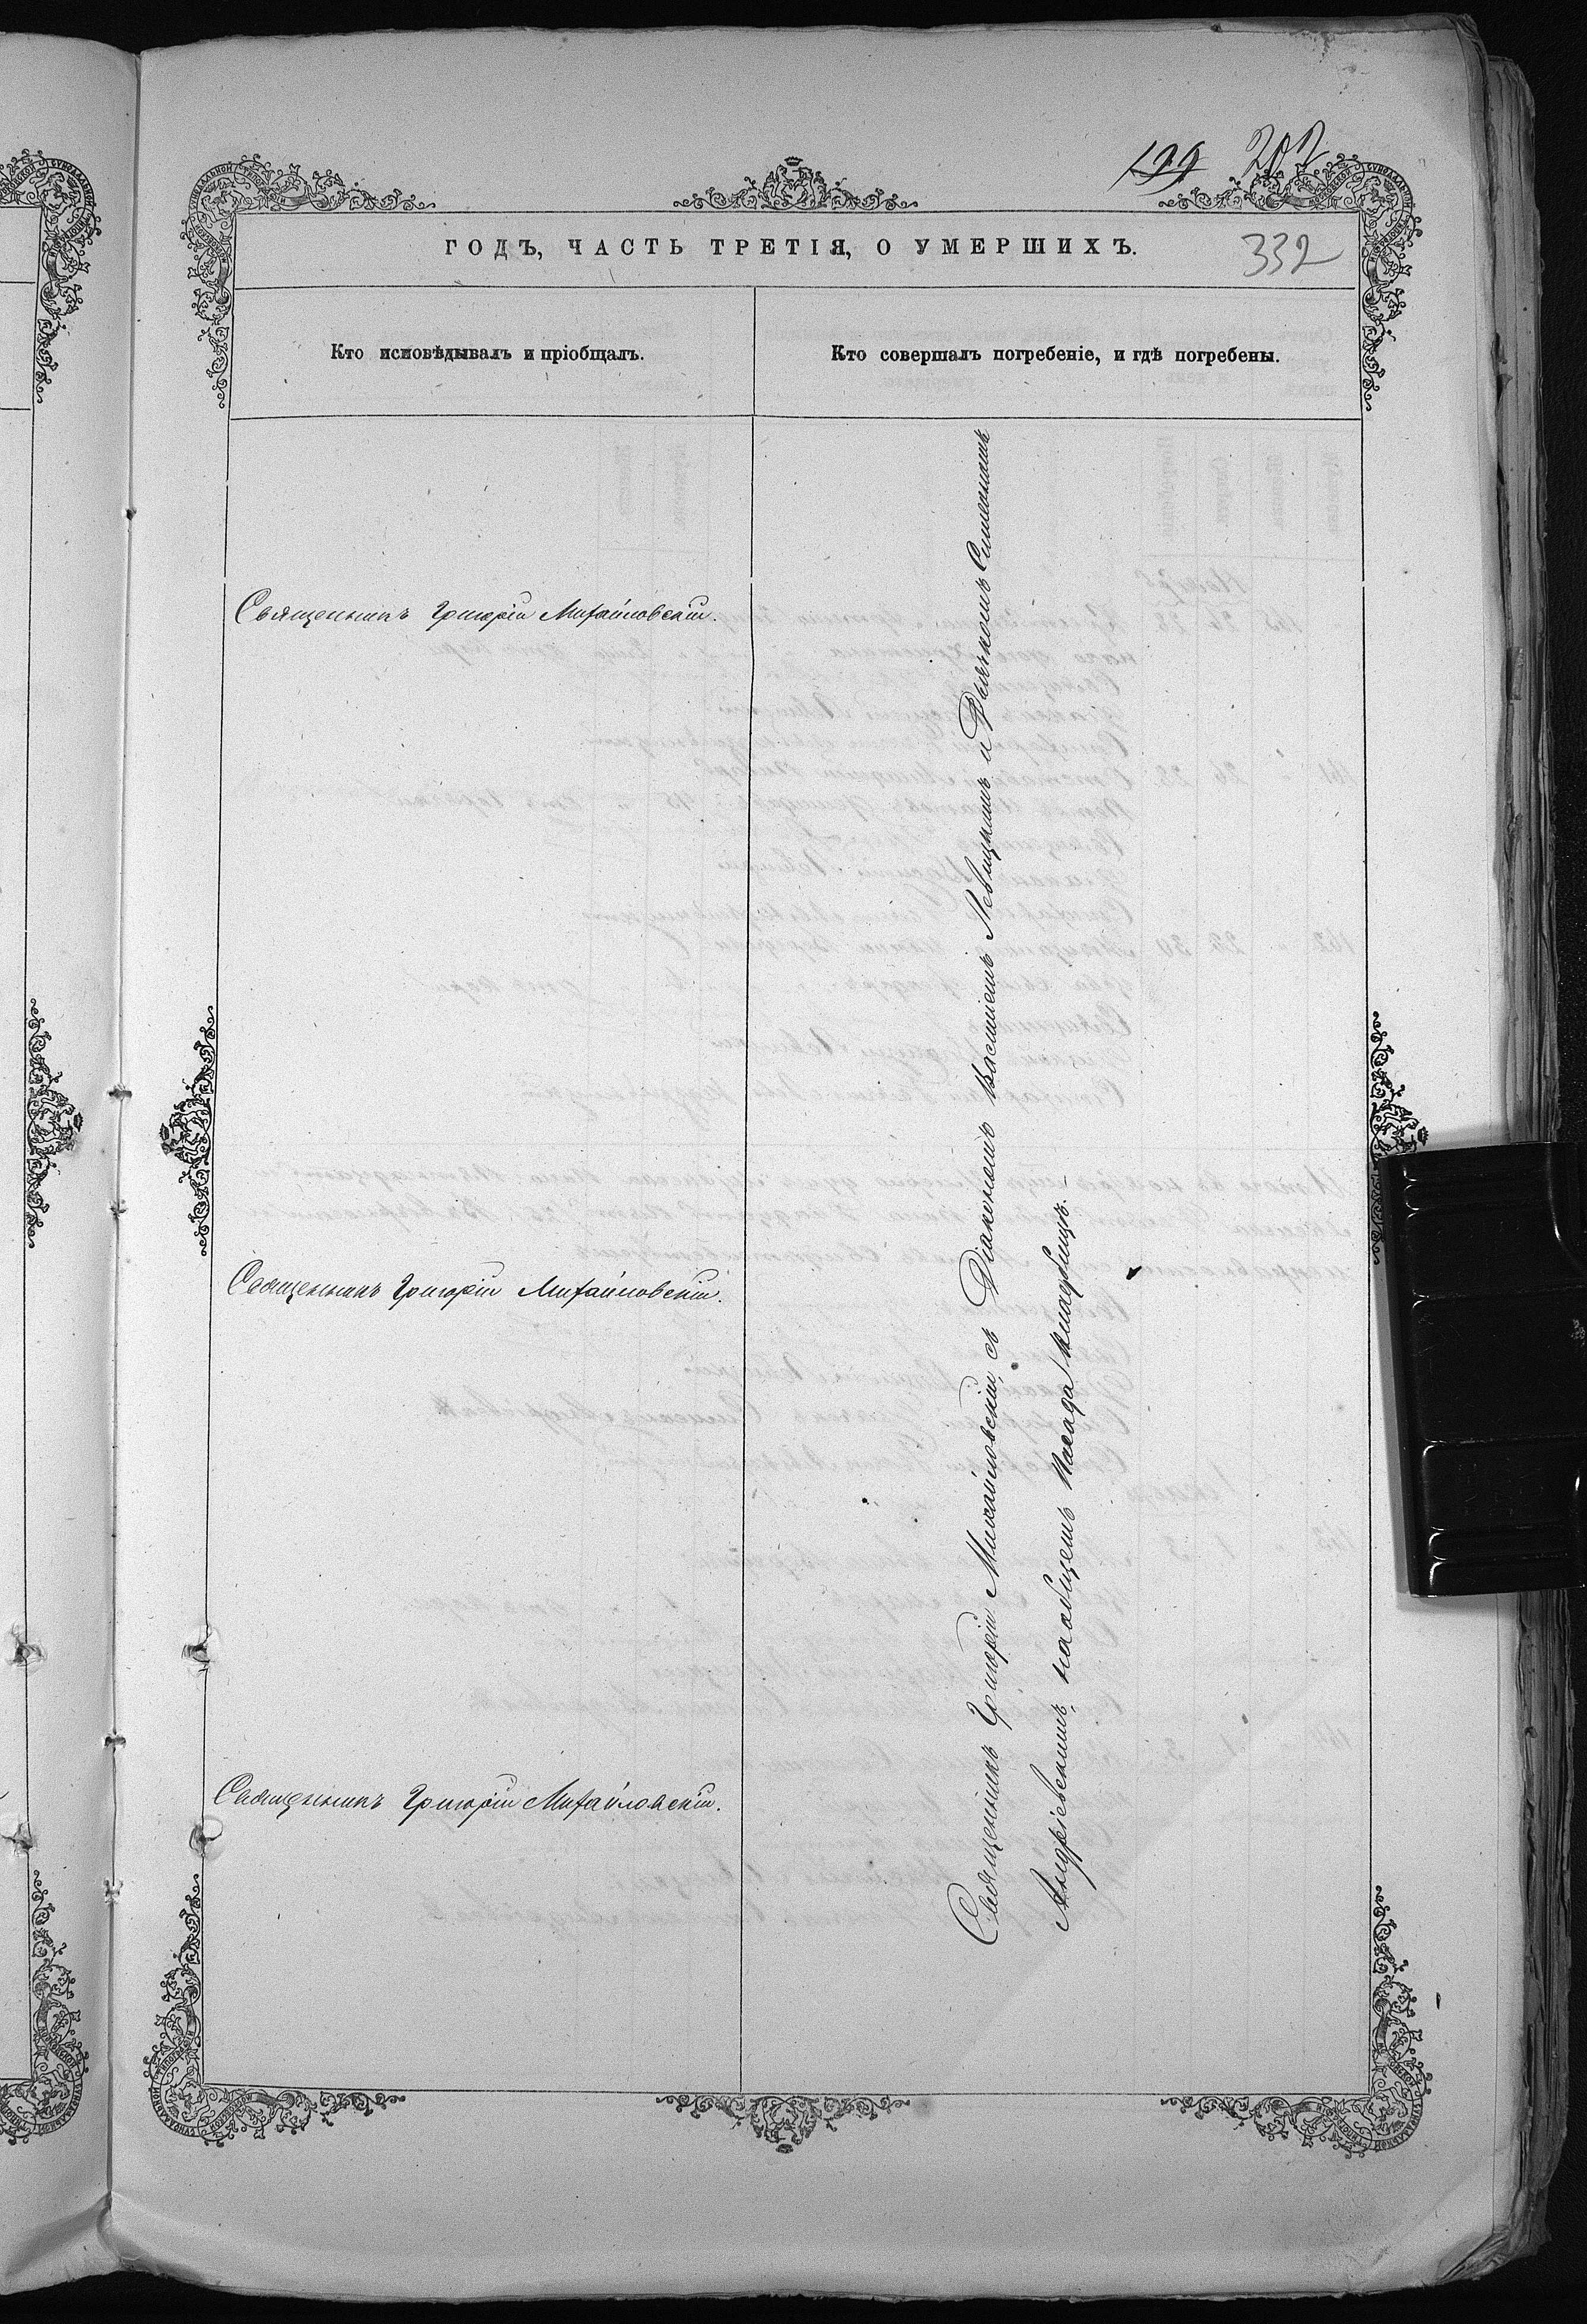 199 202
ГОДЪ, ЧАСТЬ ТРЕТІЯ, О УМЕРШИХЪ.
332
Кто исповѣдывалъ и пріобщалъ.
Кто совершалъ погребеніе, и гдѣ погребены.
Священникъ Григорій Михайловскій.
Священникъ Григорій Михайловскій.
Священникъ Григорій Михайловскій.
Священникъ Григорій Михайловскій, съ Діакономъ Василіемъ Левицкимъ и Дьячкомъ Симеономъ
Андріевскимъ, на общемъ посада кладбищѣ.